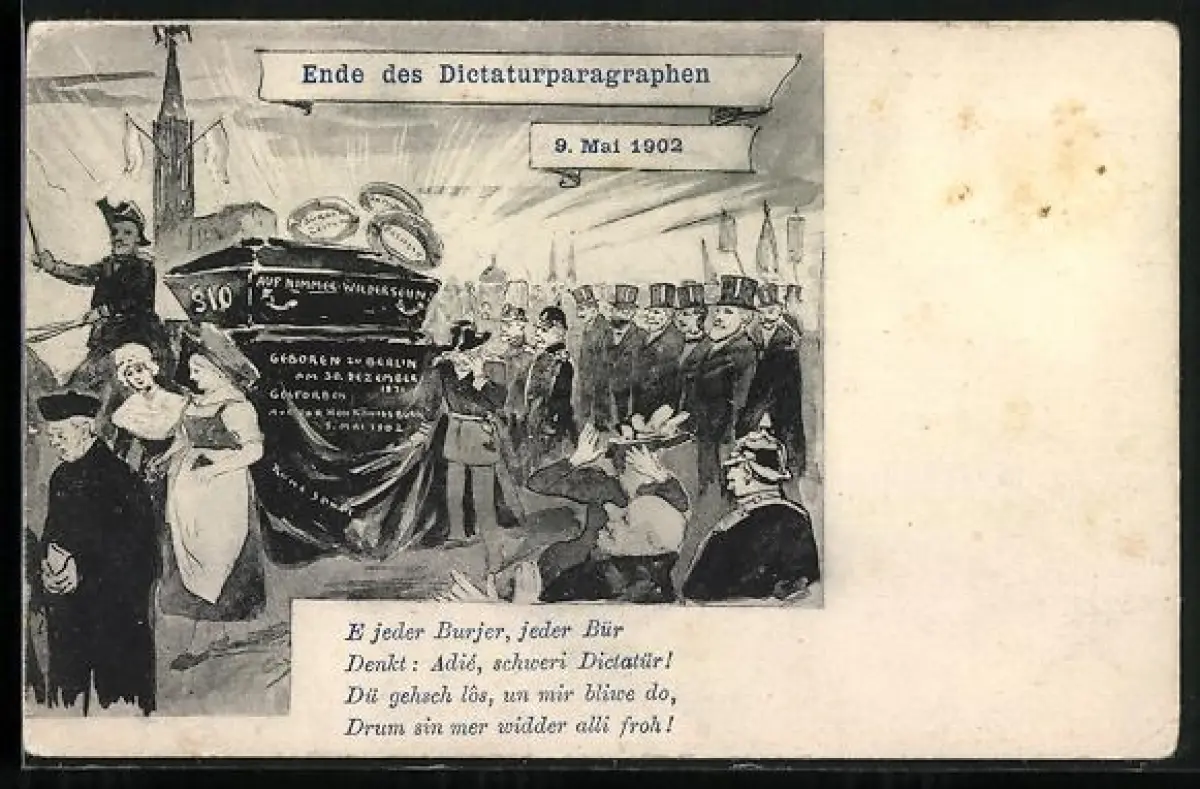 Ende des Dictaturparagraphen
9. Mai 1902
§10
AUF NIMMER-WIEDERSEHN!
GEBOREN ZU BERLIN
AM 30. DEZEMBER
1871
GESTORBEN
AUF DER HOH KÖNIGSBURG
9. MAI 1902
E jeder Burjer, jeder Bür
Denkt: Adié, schweri Dictatür!
Dü gehsch lôs, un mir bliwe do,
Drum sin mer widder alli froh!